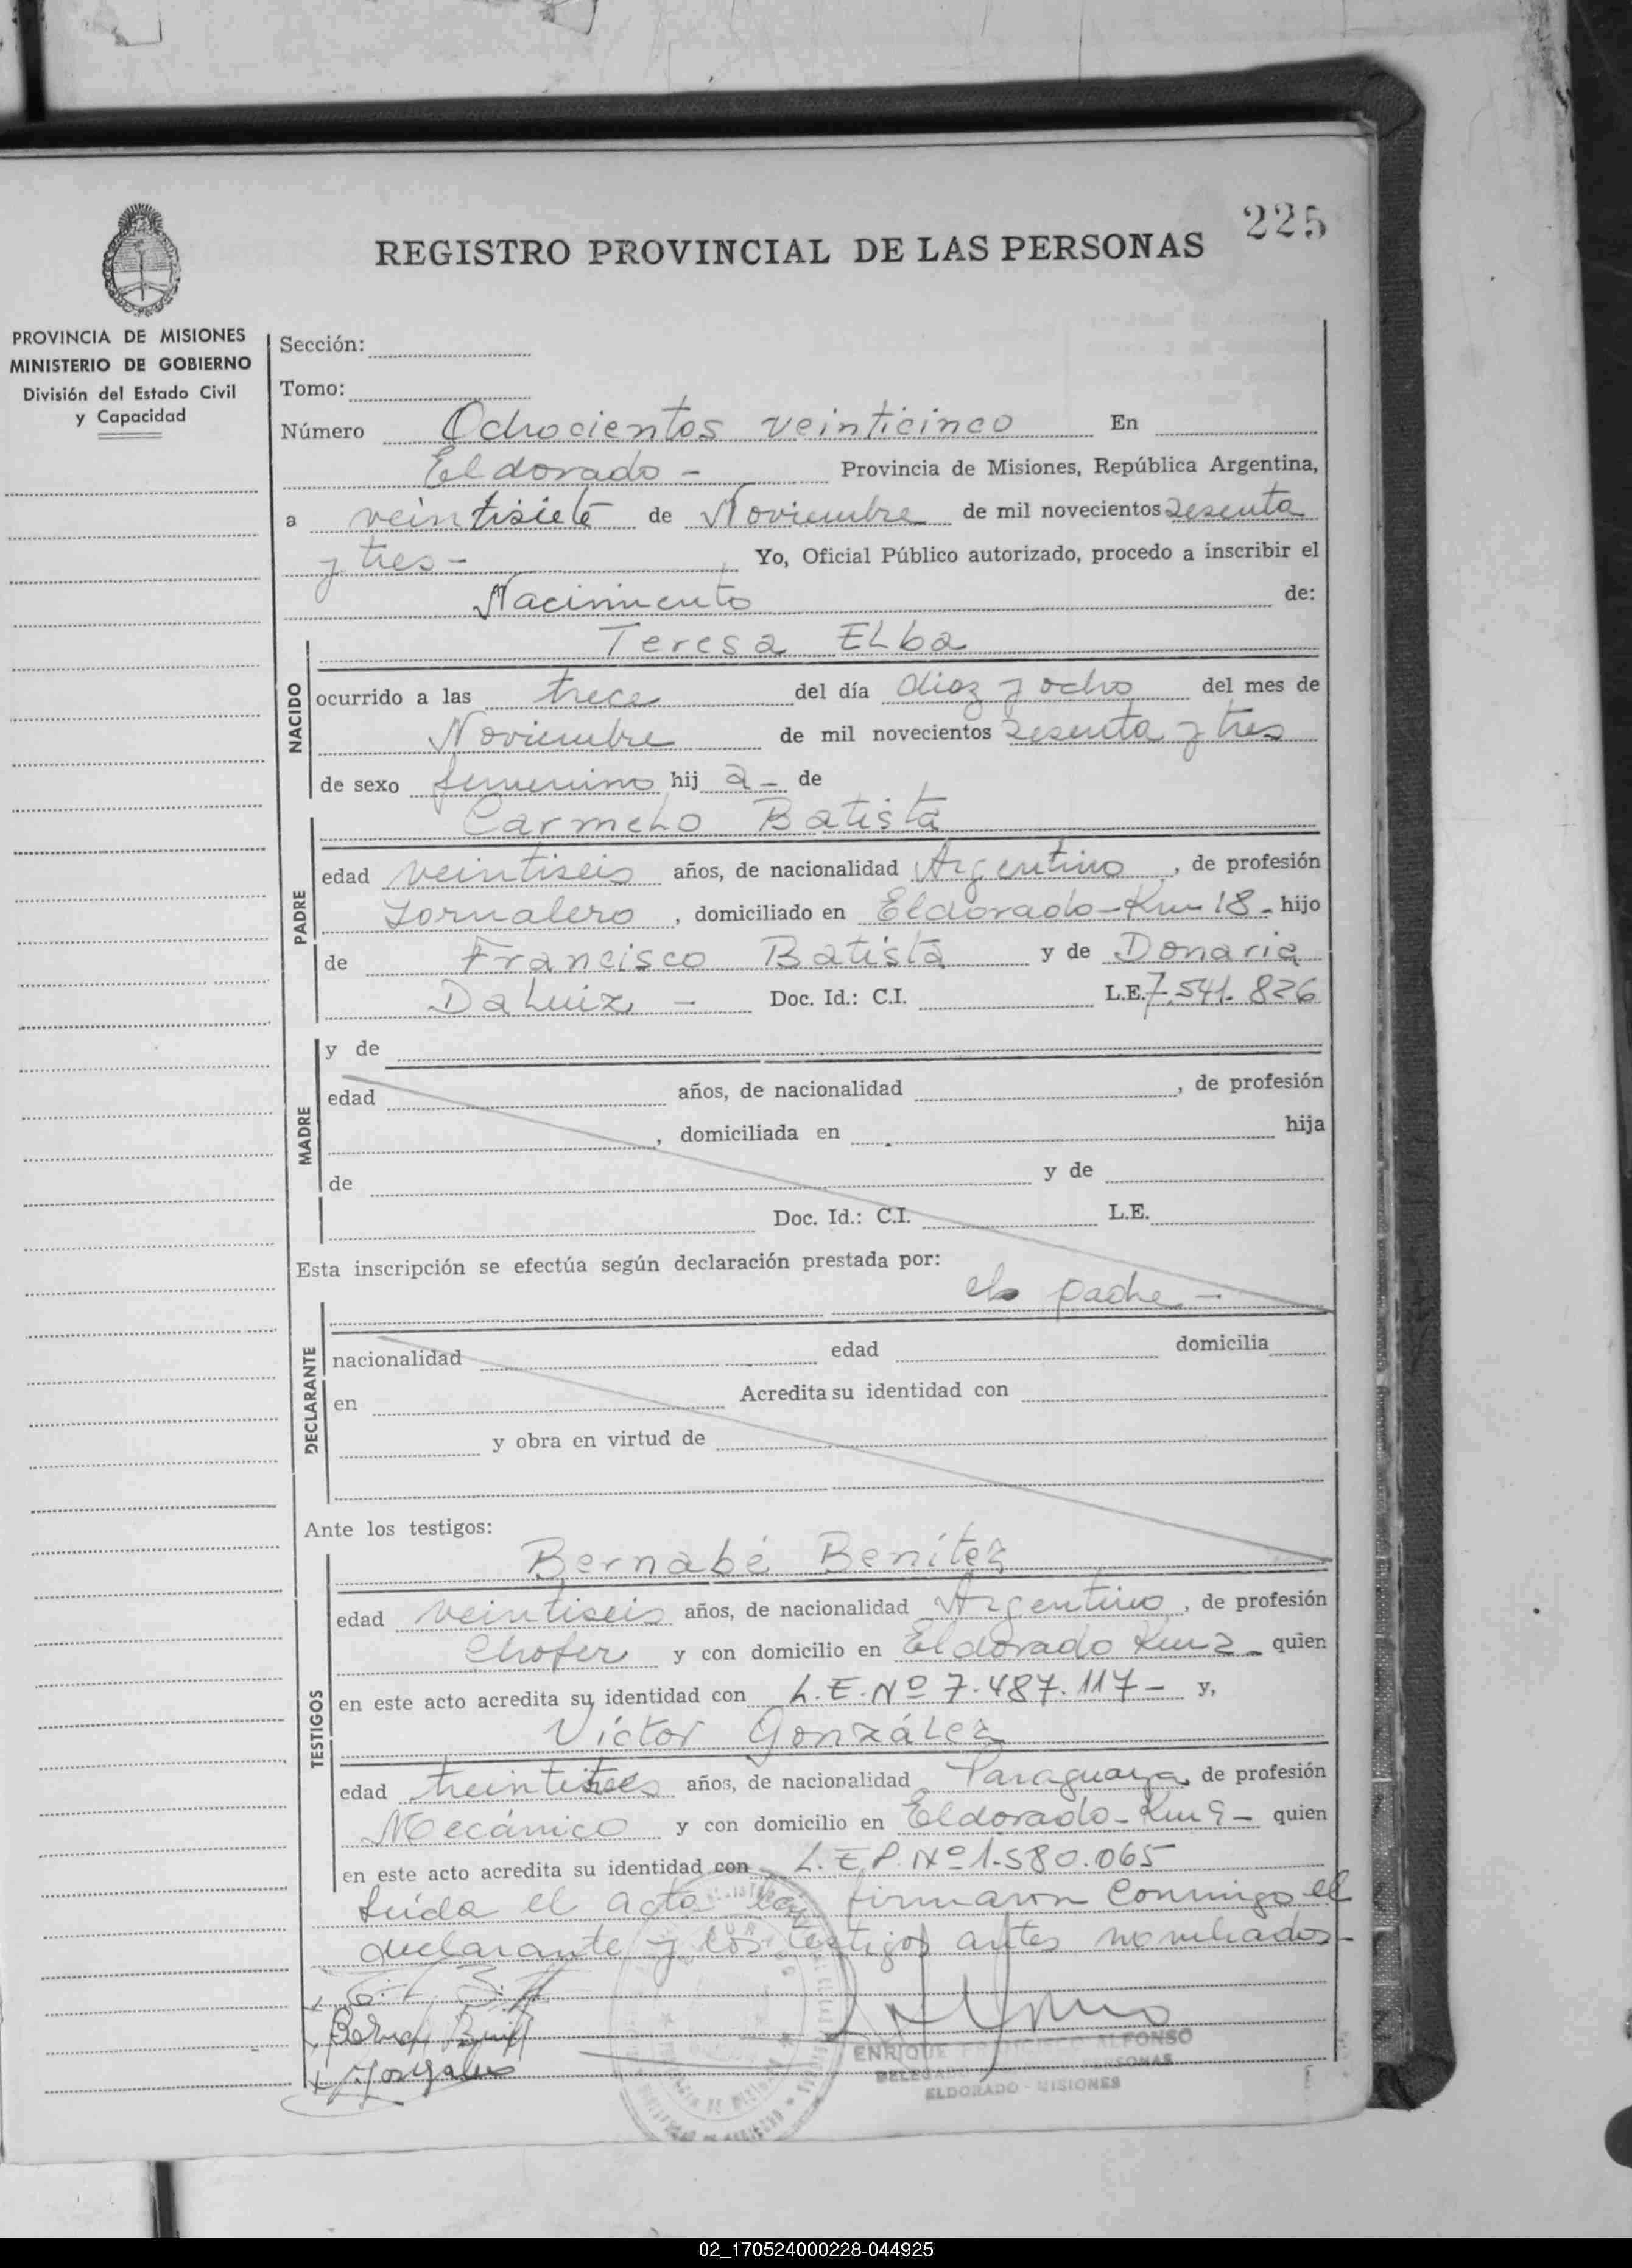 225
REGISTRO PROVINCIAL DE LAS PERSONAS
PROVINCIA DE MISIONES
MINISTERIO DE GOBIERNO
División del Estado Civil
y Capacidad
Sección:
Tomo:
Número Ochocientos veinticinco En
Eldorado - Provincia de Misiones, República Argentina,
a veintisiete de Noviembre de mil novecientos sesenta
y tres - Yo, Oficial Público autorizado, procedo a inscribir el
Nacimiento de:
NACIDO
Teresa Elba
ocurrido a las trece del día diez y ocho del mes de
Noviembre de mil novecientos sesenta y tres
de sexo femenino hij a - de
PADRE
Carmelo Batista
edad veintiseis años, de nacionalidad Argentino, de profesión
Jornalero, domiciliado en Eldorado - Km 18 - hijo
de Francisco Batista y de Donaria
Da Luiz - Doc. Id.: C.I. L.E. 7.541.826
MADRE
y de
edad años, de nacionalidad , de profesión
, domiciliada en hija
de y de
Doc. Id.: C.I. L.E.
Esta inscripción se efectúa según declaración prestada por:
el padre -
DECLARANTE
nacionalidad edad domicilia
en Acredita su identidad con
y obra en virtud de
Ante los testigos:
TESTIGOS
Bernabé Benítez
edad veintiseis años, de nacionalidad Argentino, de profesión
Chofer y con domicilio en Eldorado Km 2 - quien
en este acto acredita su identidad con L.E. Nº 7.487.117 - y,
Víctor González
edad treintitres años, de nacionalidad Paraguaya, de profesión
Mecánico y con domicilio en Eldorado - Km 9 - quien
en este acto acredita su identidad con L.E.P. Nº 1.580.065
Leída el acta la firmaron conmigo el
declarante y los testigos antes nombrados -
Gonzales
ENRIQUE FRANCISCO ALFONSO
ELDORADO - MISIONES
02_170524000228-044925